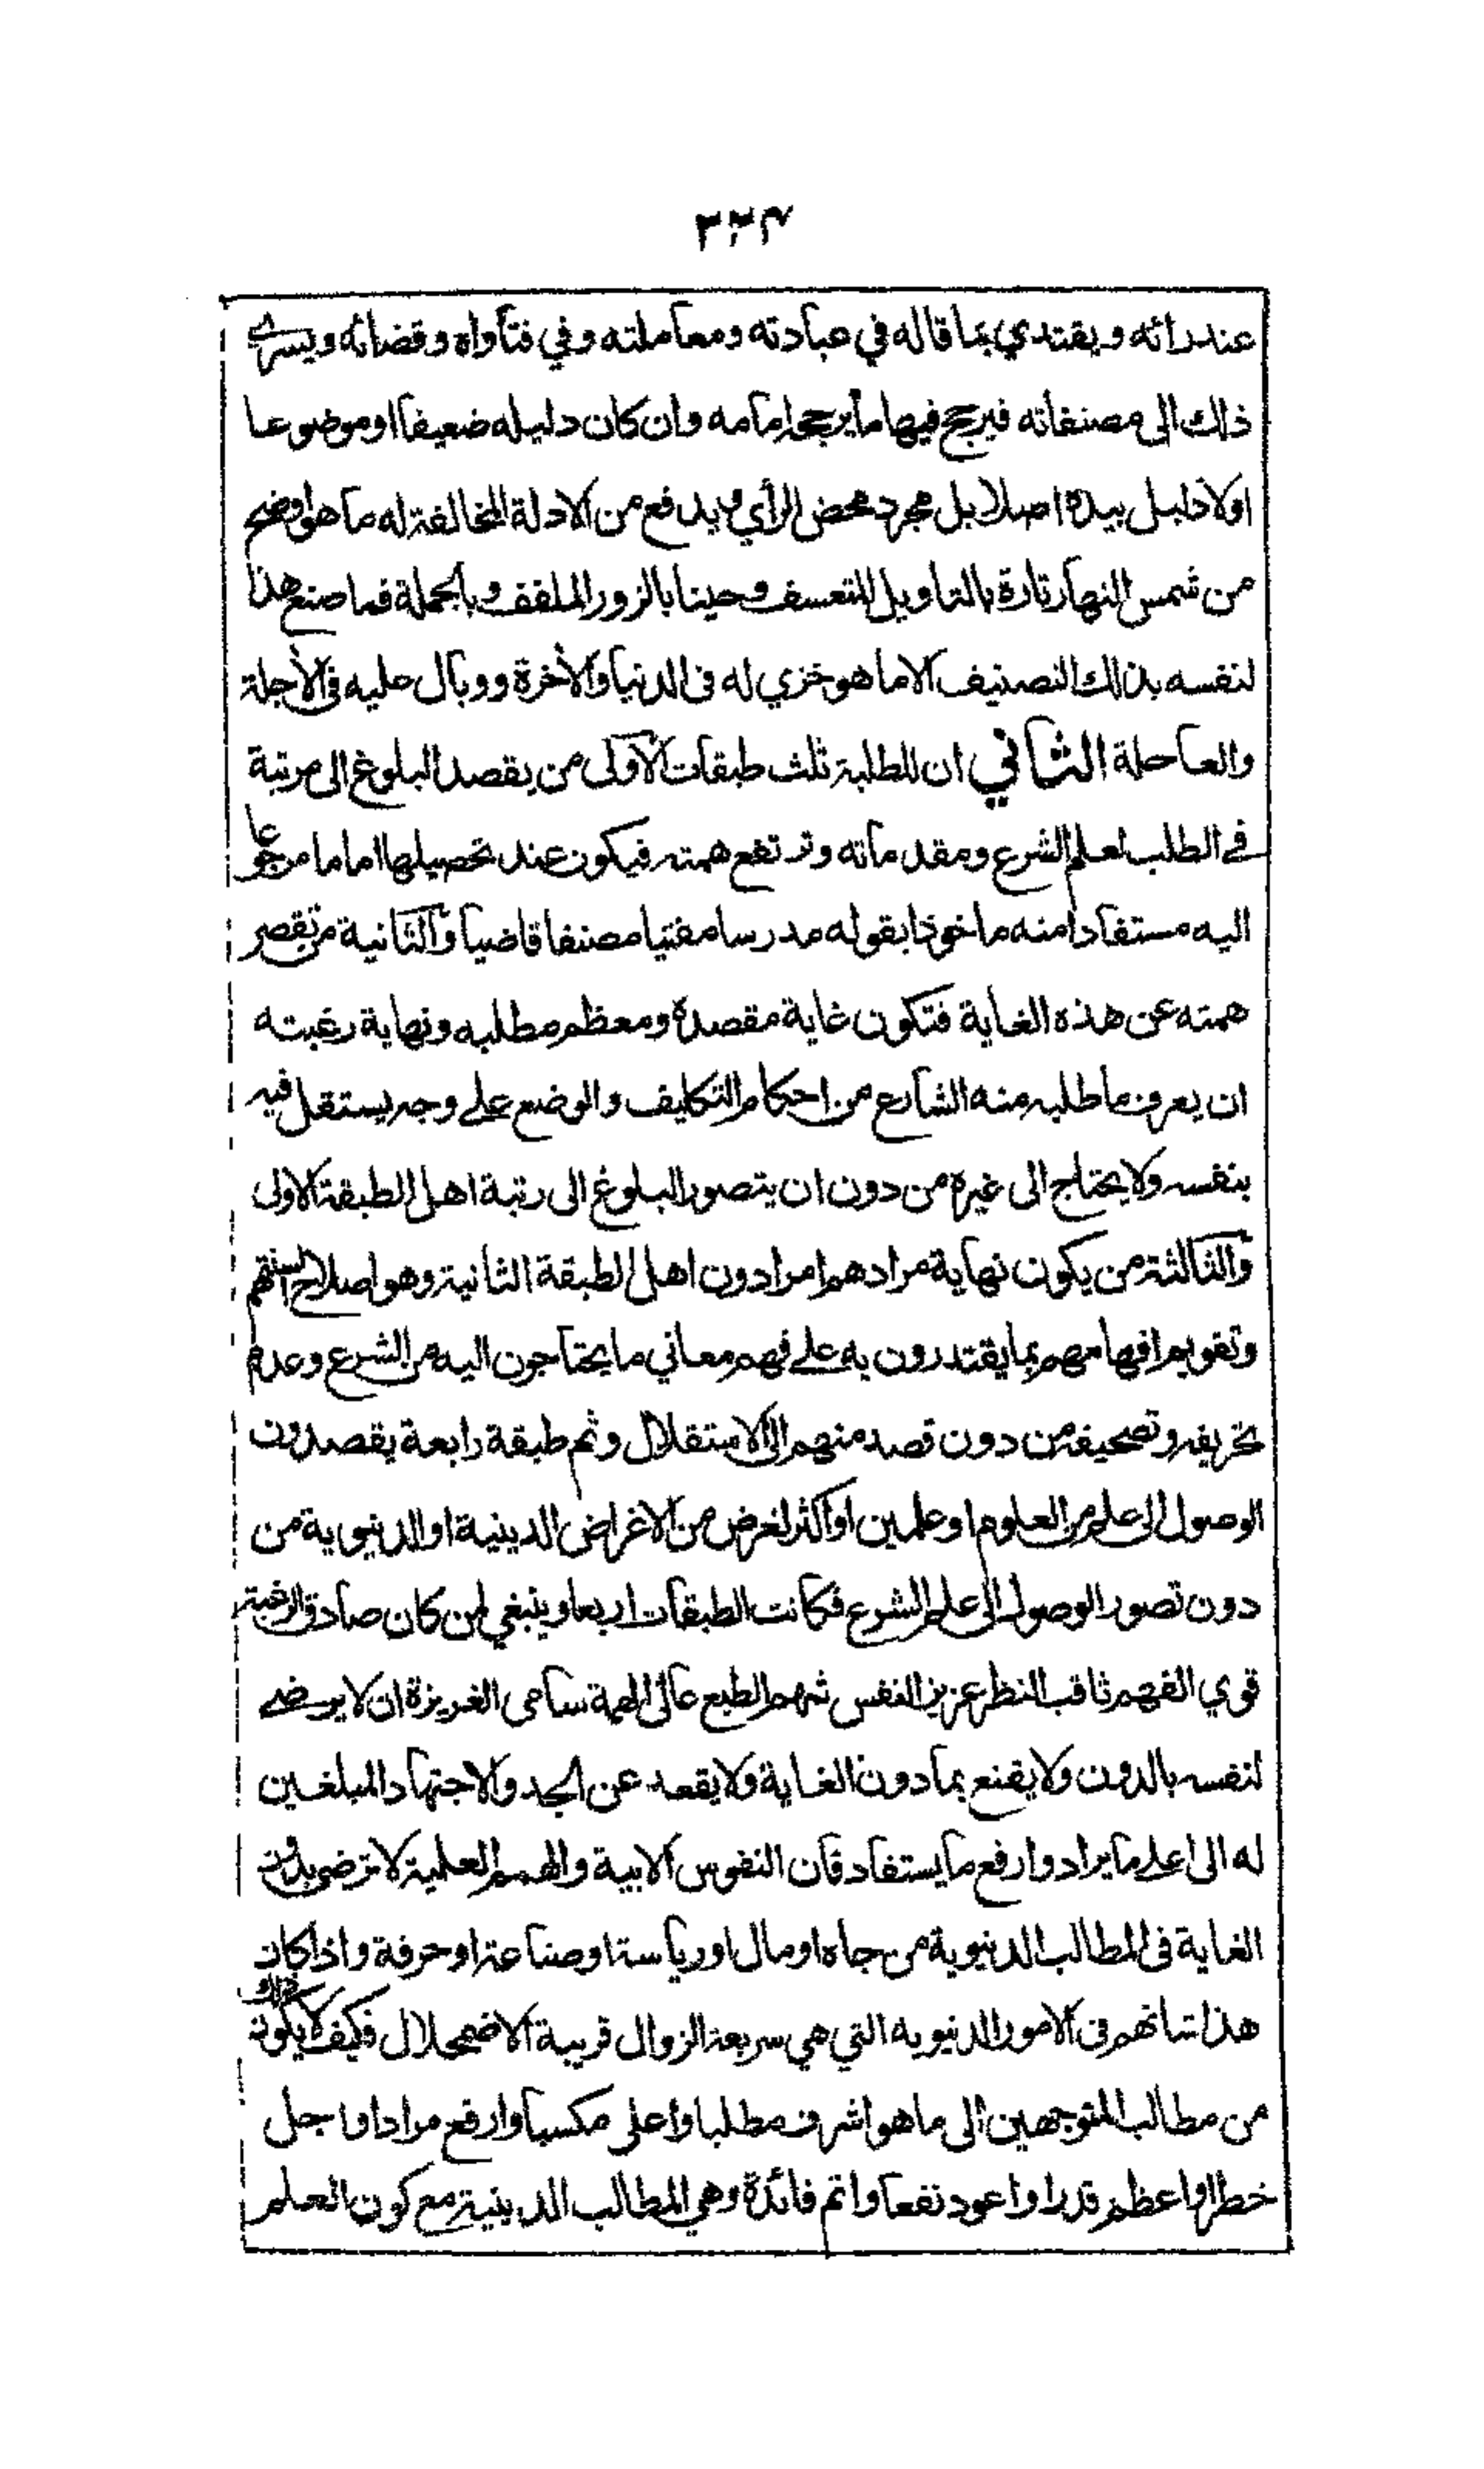 ٢٢٣
عند رائه ويقتدي بما قاله في عبادته ومعاملته وفي فتاواه وقضائه ويسري
ذلك الى مصنفاته فيرجح فيها ما يرجحه امامه وان كان دليله ضعيفا او موضوعا
اولا دليل بيده اصلا بل مجرد محض الرأي ويدفع من الادلة المخالفة له ما هو اوضح
من شمس النهار تارة بالتاويل المتعسف وحينا بالزور الملفف وبالجملة فما صنع هذا
لنفسه بذلك التصنيف الا ما هو خزي له فى الدنيا والأخرة ووبال عليه فى الأجلة
والعاجلة الثاني ان للطلبة ثلث طبقات الاولى من يقصد البلوغ الى مرتبة
في الطلب لعلم الشرع ومقدماته وترتفع همته فيكون عند تحصيلها اماما مرجوعا
اليه مستفادا منه ماخوذا بقوله مدرسا مفتيا مصنفا قاضيا والثانية من تقصر
همته عن هذه الغاية فتكون غاية مقصده ومعظم مطلبه ونهاية رغبته
ان يعرف ما طلبه منه الشارع من احكام التكليف والوضع على وجه يستقل فيه
بنفسه ولا يحتاج الى غيره من دون ان يتصور البلوغ الى رتبة اهل الطبقة الاولى
والثالثة من يكون نهاية مرادهم امرا دون اهل الطبقة الثانية وهو اصلاح السنتهم
وتقويم افهامهم بما يقتدرون به على فهم معاني ما يحتاجون اليه من الشرع وعدم
تحريفه وتصحيفه من دون قصد منهم الى الاستقلال وثم طبقة رابعة يقصدون
الوصول الى علم من العلوم او علمين او اكثر لغرض من الاغراض الدينية او الدنيوية من
دون تصور الوصول الى علم الشرع فكانت الطبقات اربعا وينبغي لمن كان صادق الرغبة
قوي الفهم ثاقب النظر عزيز النفس شهم الطبع عالى الهمة سامى الغريزة ان لا يرضى
لنفسه بالدون ولا يقنع بما دون الغاية ولا يقعد عن الجد والاجتهاد المبلغين
له الى اعلى ما يراد وارفع ما يستفاد فان النفوس الابية والهمم العلية لا ترضى بدون
الغاية فى المطالب الدنيوية من جاه او مال او رياسة او صناعة او حرفة واذا كان
هذا شانهم فى الامور الدنيويه التي هي سريعة الزوال قريبة الاضمحلال فكيف لا يكون ذلك
من مطالب المتوجهين الى ما هو اشرف مطلبا واعلى مكسبا وارفع مرادا واجل
خطرا واعظم قدرا واعود نفعا واتم فائدة وهي المطالب الدينية مع كون العلم